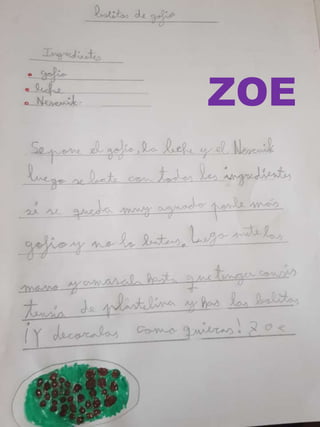 bolitas de gofio
Ingredientes
gofio
leche
Nescuik
ZOE
Se pone el gofio, la leche y el Nescuik
luego se bate con todos los ingredientes
si se queda muy aguado ponle más
gofio y no lo batas. Luego mete las
manos y amasala hasta que tenga consis
tensia de plastelina y has las bolitas
¡Y decoralas como quieras! Zoe